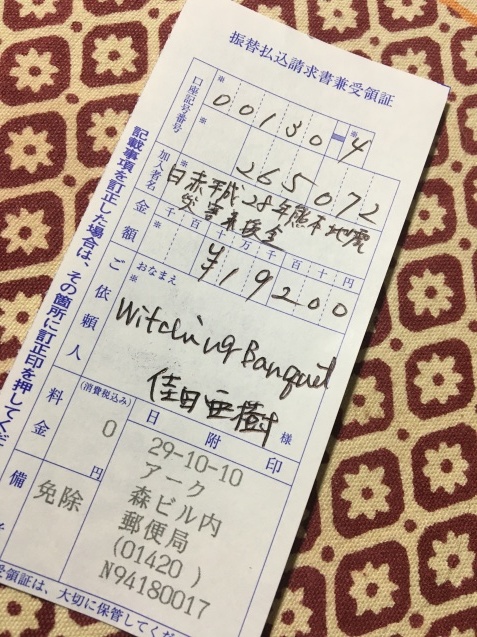 振替払込請求書兼受領証
口座記号番号
※
00130-4
※
265072
加入者名
※
日赤平成28年熊本地震
災害義援金
金額
千百十万千百十円
※
¥19200
ご依頼人
おなまえ
※
Witching Banquet
佳日亜樹
様
料金
(消費税込み)
0
円
日附印
29-10-10
アーク
森ビル内
郵便局
(01420 )
N94180017
備
免除
記載事項を訂正した場合は、その箇所に訂正印を押してくだ
受領証は、大切に保管してくだ